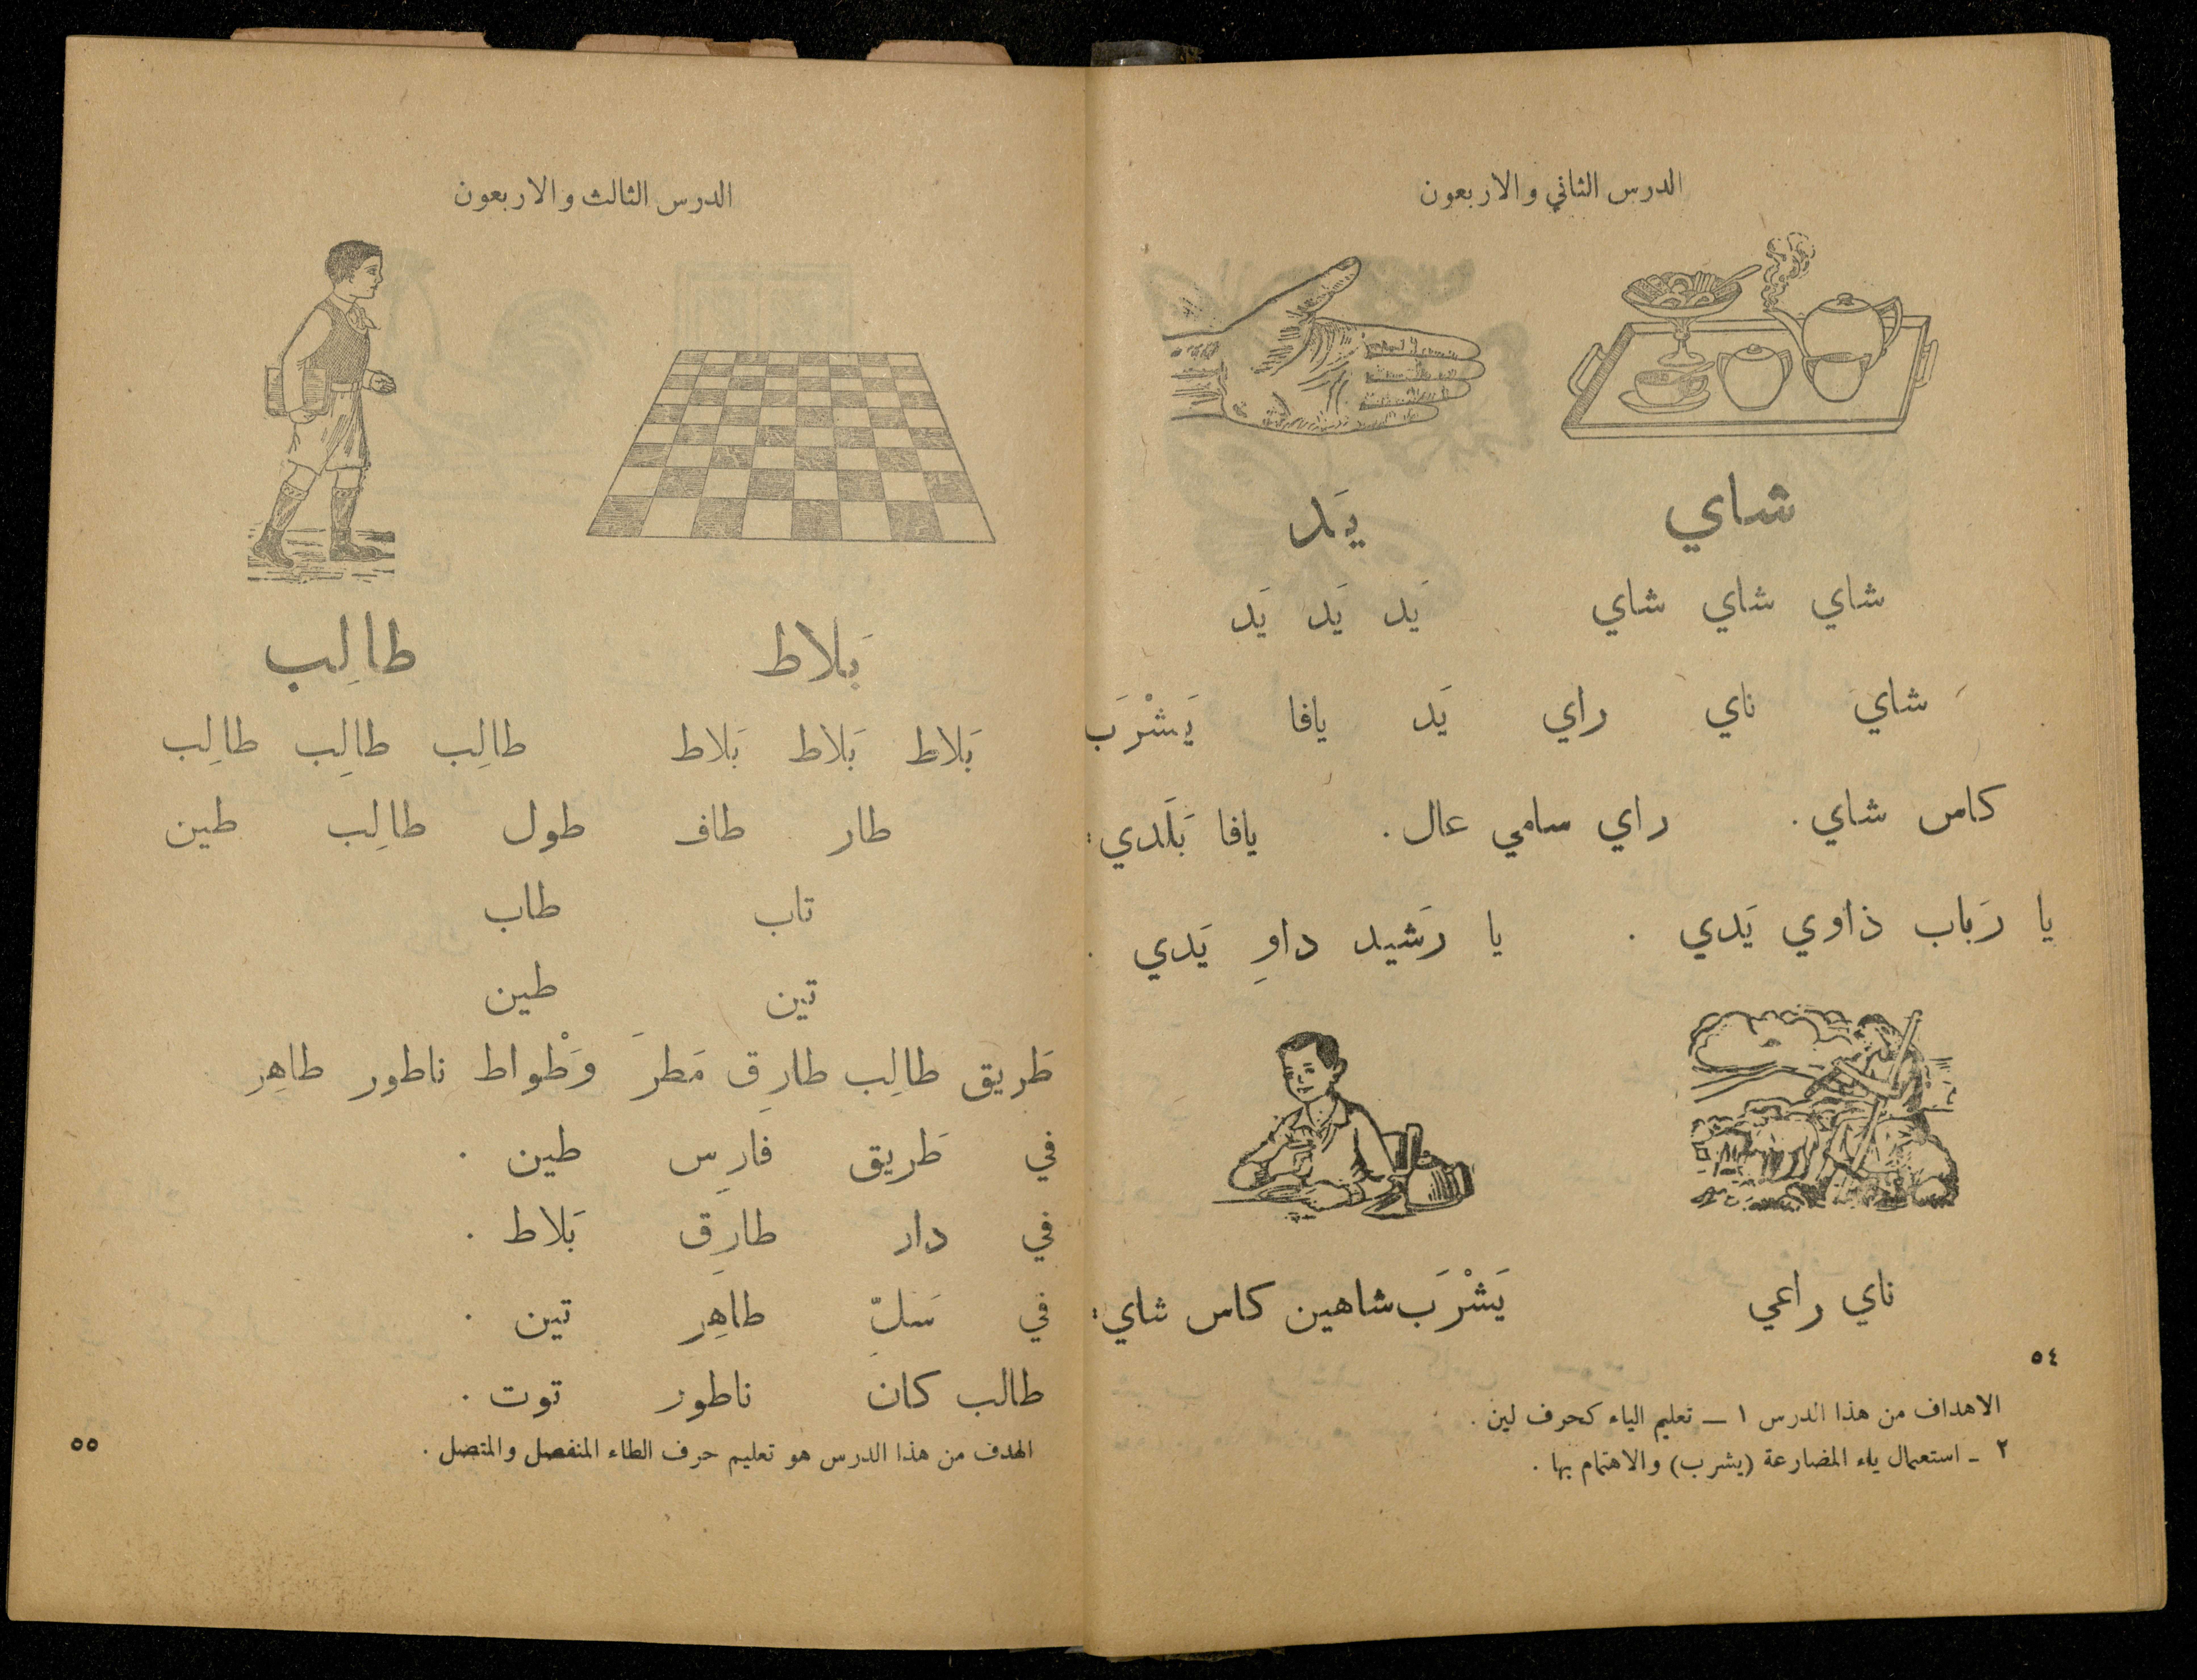 الدرس الثاني والاربعون
شاي يَد
شاي شاي شاي يَد يَد يَد
شاي ناي راي يَد يافا يَشْرَب
كاس شاي . راي سامي عال . يافا بَلَدي :
يا رَباب ذاوي يَدي . يا رَشيد داوِ يَدي .
ناي راعي يَشْرَب شاهين كاس شاي :
٥٤
الاهداف من هذا الدرس ١ ــ تعليم الياء كحرف لين .
٢ ـ استعمال ياء المضارعة (يشرب) والاهتمام بها .
الدرس الثالث والاربعون
بَلاط طالِب
بَلاط بَلاط بَلاط طالِب طالِب طالِب
طار طاف طول طالِب طين
تاب طاب
تين طين
طَريق طالِب طارِق مَطَر وَطْواط ناطور طاهِر
في طَريق فارِس طين .
في دار طارِق بَلاط .
في سَلِّ طاهِر تين .
طالب كان ناطور توت .
الهدف من هذا الدرس هو تعليم حرف الطاء المنفصل والمتصل .
٥٥